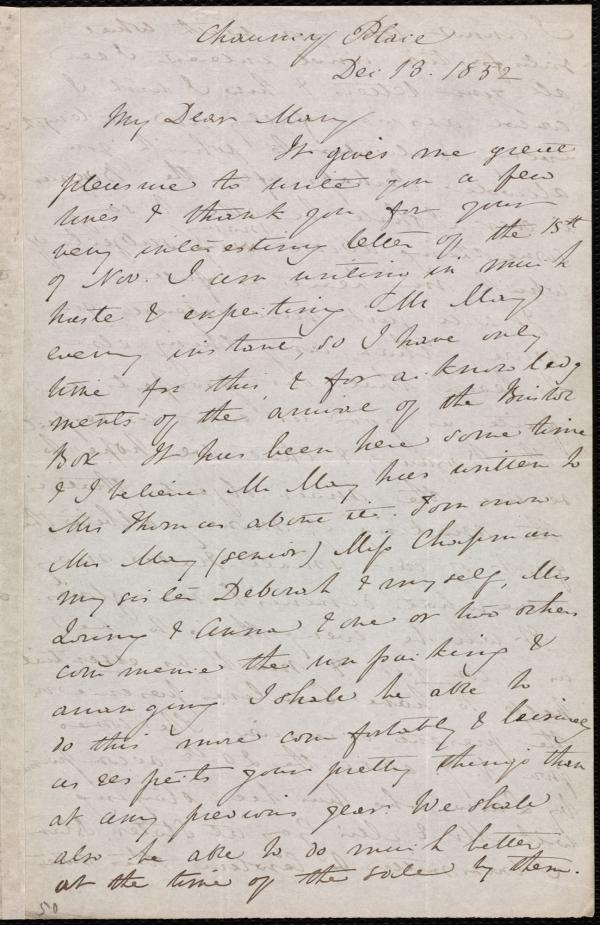 Chauncy Place
Dec 13. 1852
My Dear Mary
It gives me great
pleasure to write you a few
lines & thank you for your
very interesting letter of the 15th
of Nov. I am writing in much
haste & expecting (Mr May)
every instant, so I have only
time for this, & for acknowledg
ments of the arrival of the Bristol
Box It has been here some time
& I believe Mr May has written to
Mrs Thomas about it. Tomorrow
Mrs May (senior) Miss Chapman
my sister Deborah & myself, Mrs
Loring & Anna & one or two others
commence the unpacking &
arranging I shall be able to
do this more comfortably & leisurely
as respects your pretty things than
at any previous year. We shall
also be able to do much better
at the time of the sale by them.
50